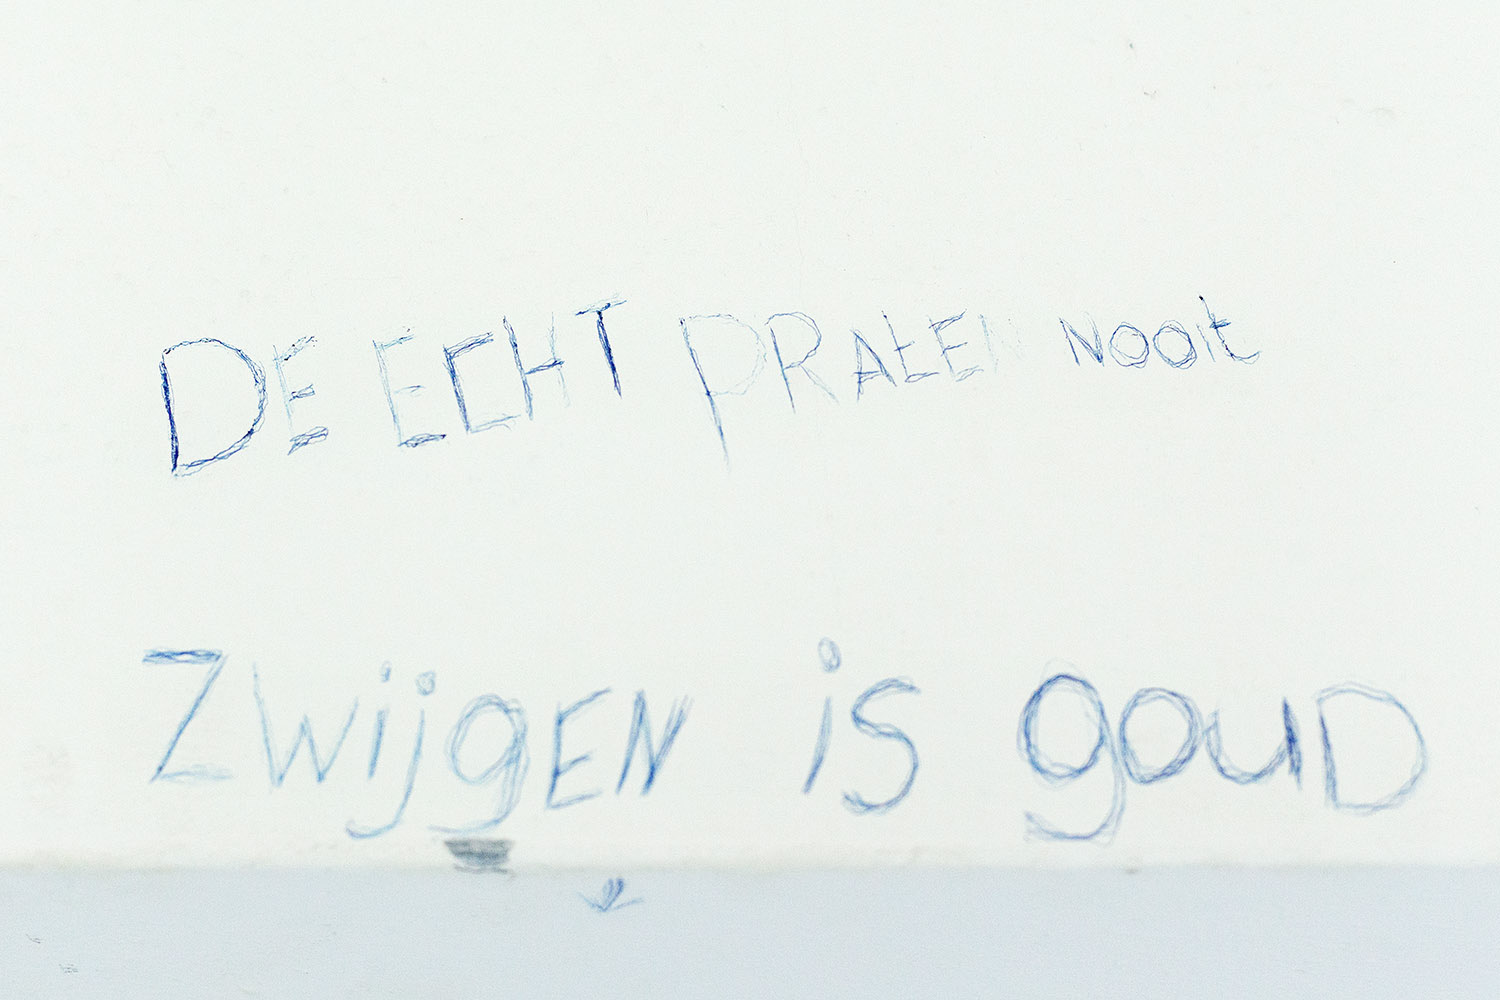 DE ECHT PRAtEN NOOit
ZwijgEN is gouD